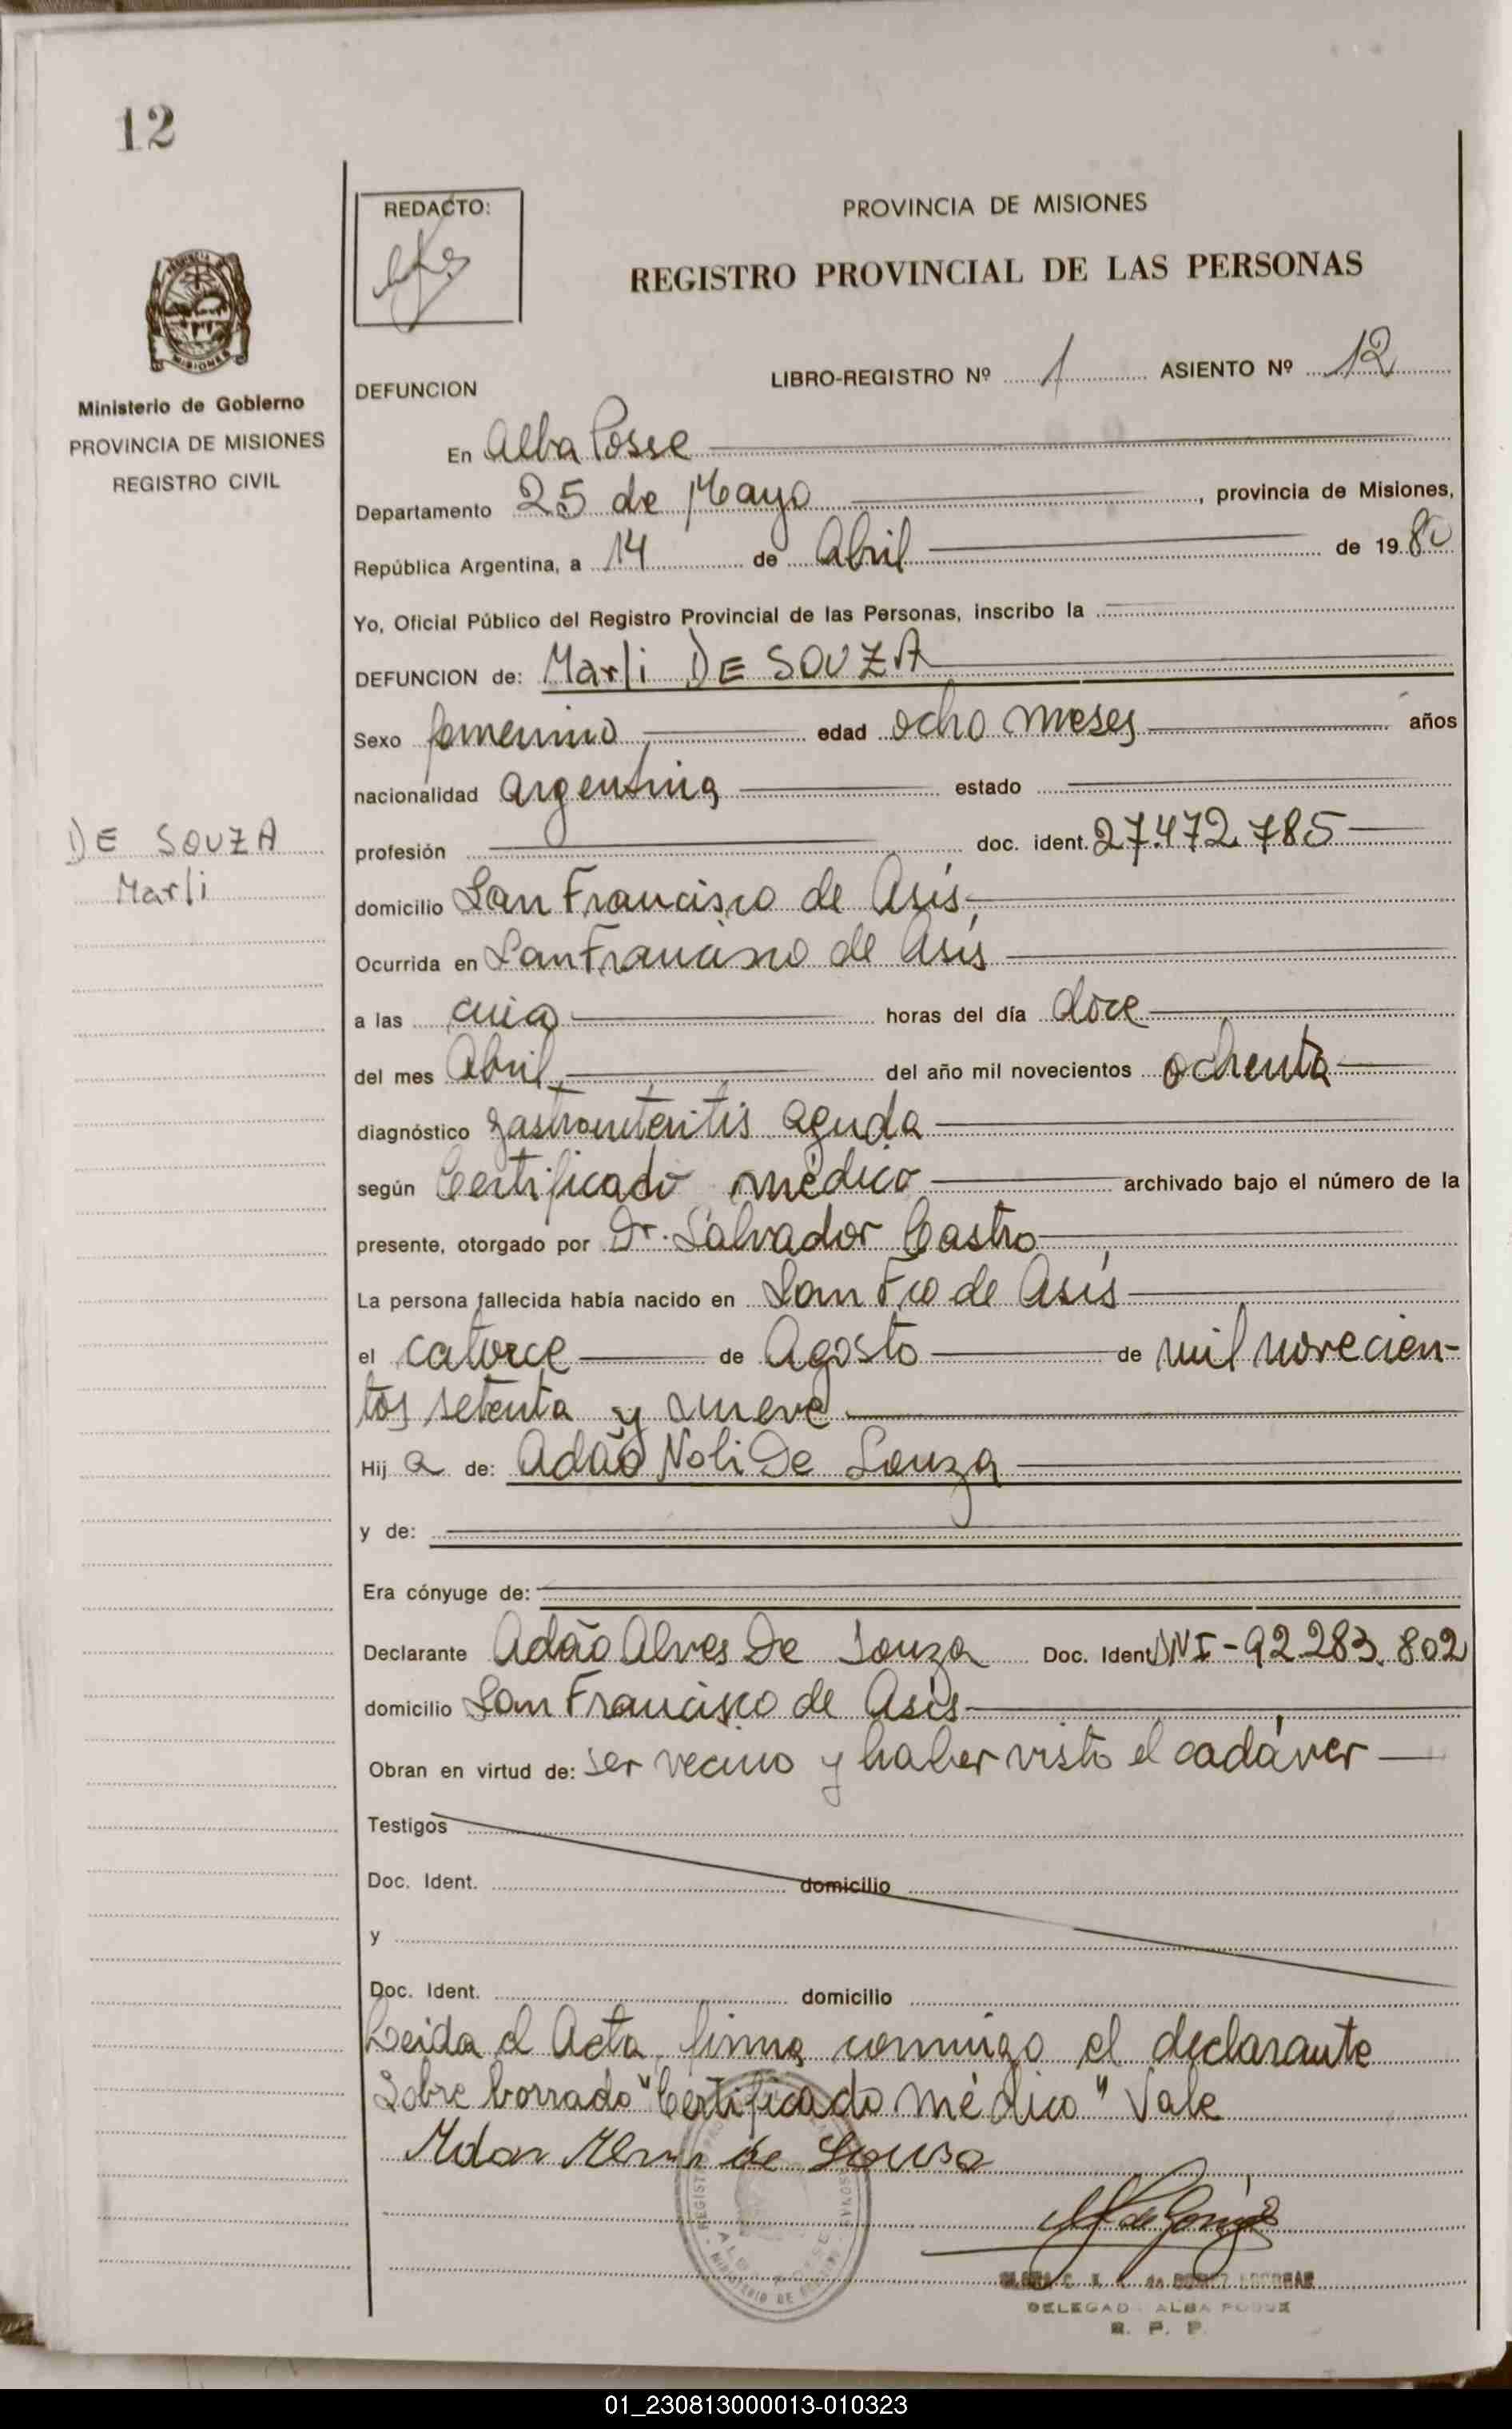 12
REDACTO:
PROVINCIA DE MISIONES
REGISTRO PROVINCIAL DE LAS PERSONAS
MISIONES
Ministerio de Gobierno
PROVINCIA DE MISIONES
REGISTRO CIVIL
LIBRO-REGISTRO Nº 1 ASIENTO Nº 12
DEFUNCION
En Alba Posse
Departamento 25 de Mayo, provincia de Misiones,
República Argentina, a 14 de Abril de 1980
Yo, Oficial Público del Registro Provincial de las Personas, inscribo la
DEFUNCION de: Marli DE SOUZA
Sexo femenino edad ocho meses años
nacionalidad argentina estado
DE SOUZA
Marli
profesión doc. ident. 27.472.785
domicilio San Francisco de Asís
Ocurrida en San Francisco de Asís
a las horas del día doce
del mes Abril del año mil novecientos ochenta
diagnóstico gastroenteritis aguda
según Certificado médico archivado bajo el número de la
presente, otorgado por Dr. Salvador Castro
La persona fallecida había nacido en San Fco de Asís
el catorce de Agosto de mil novecien-
tos setenta y nueve
Hija de: Adão Noli De Souza
y de:
Era cónyuge de:
Declarante Adão Alves De Souza Doc. Ident DNI-92.283.802
domicilio San Francisco de Asís
Obran en virtud de: ser vecino y haber visto el cadáver
Testigos
Doc. Ident. domicilio
y
Doc. Ident. domicilio
Leida el Acta, firma conmigo el declarante
Sobre borrado "Certificado médico" Vale
de Souza
DELEGAD ALBA POSSE
R. P. P.
01_230813000013-010323